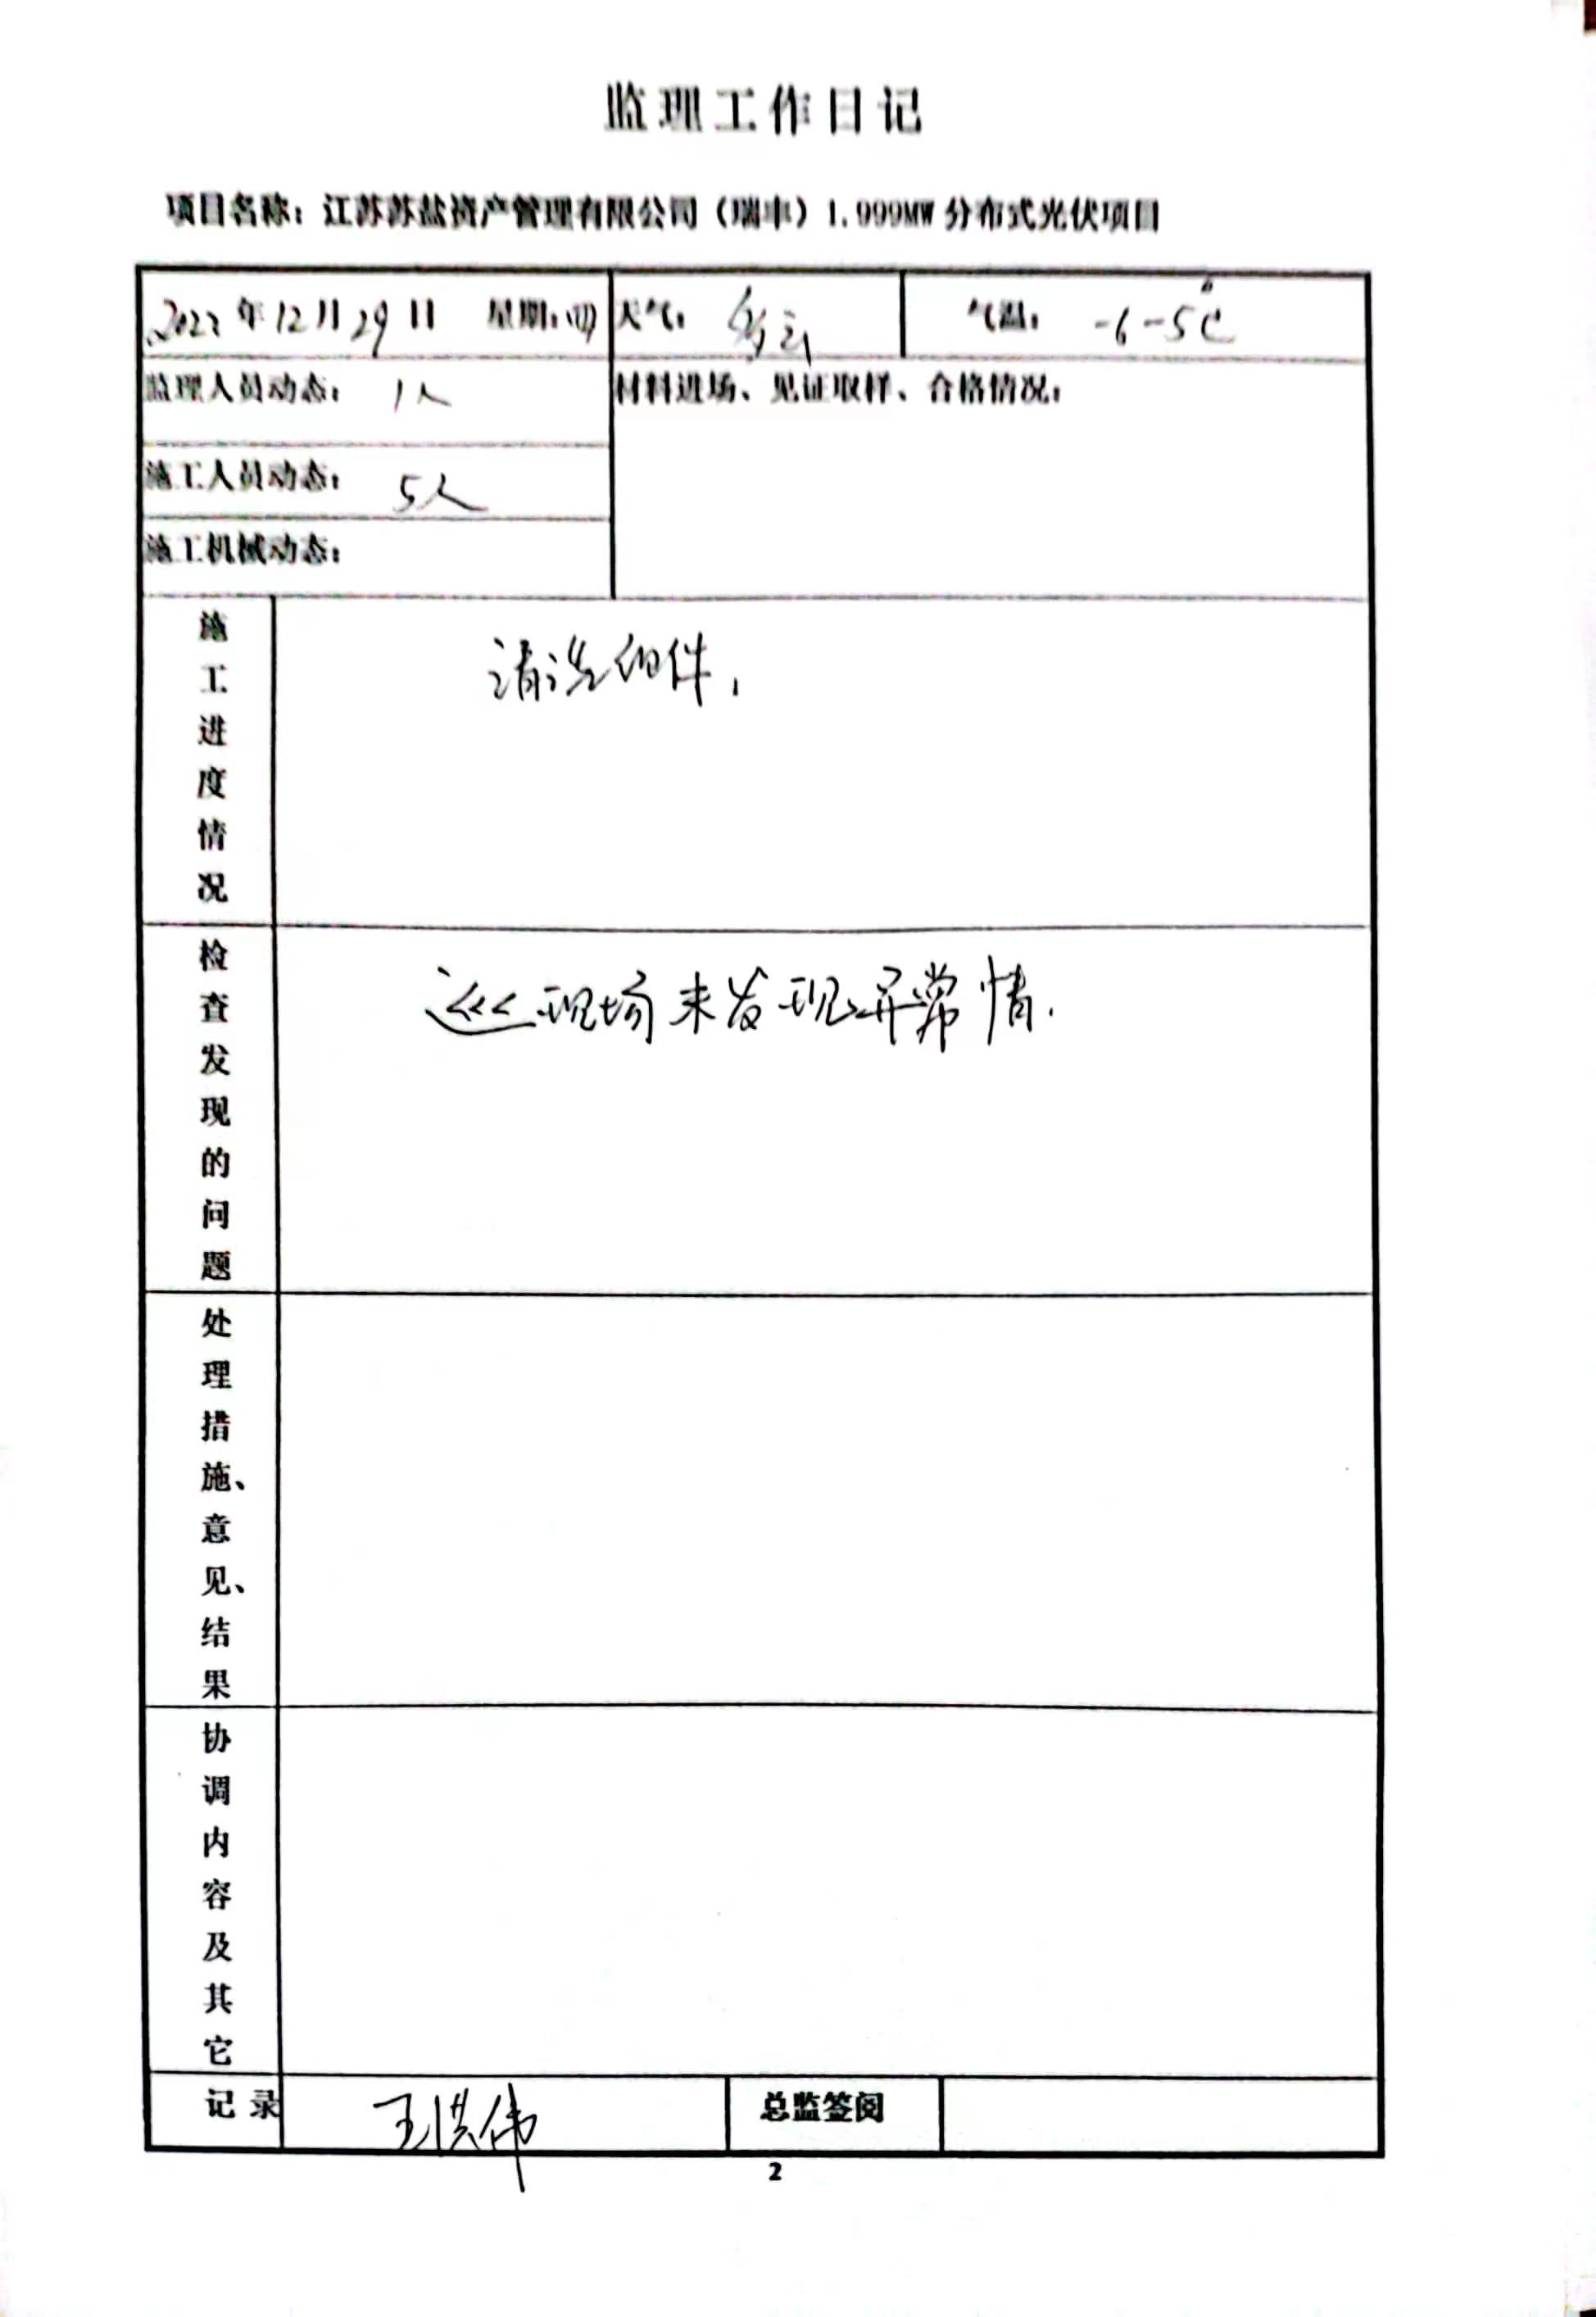 监理工作日记
项目名称：江苏苏盐资产管理有限公司（瑞丰）1.999MW分布式光伏项目
2022年12月29日 星期：四 天气：多云 气温：-6-5℃
监理人员动态：1人 材料进场、见证取样、合格情况：
施工人员动态：5人
施工机械动态：
施工进度情况 清洗组件，
检查发现的问题 巡现场未发现异常情.
处理措施、意见、结果
协调内容及其它
记录 王洪伟 总监签阅
2